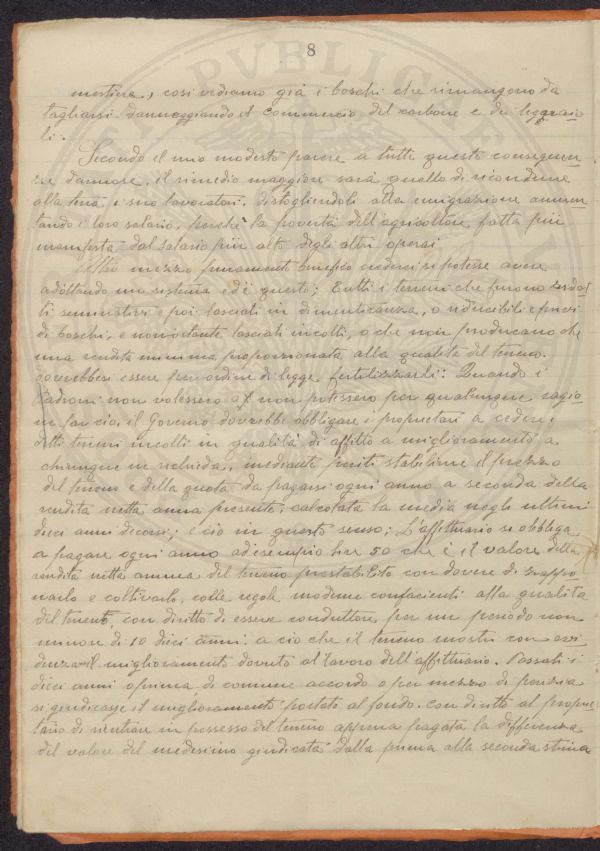 8
mestiere, così vediamo già i boschi che rimangono da
tagliarsi danneggiando il commercio del carbone e dei legnaio
li.
Secondo il mio modesto parere a tutte queste conseguen
ze dannose, il rimedio maggiore sarà quello di ricondurre
alla terra i suoi lavoratori, distogliendoli alla emigrazione aumen
tando i loro salario, perchè la povertà dell'agricoltore fatta più
manifesta dal salario più alto degli altri operai
Altro mezzo puramente benefico crederei si potesse avere
adottando un sistema ed è questo; Tutti i terreni che furono
ti seminativi e poi lasciati in dimenticanza, o riducibili e privi
di boschi, e nonostante lasciati incolti, o che non producano che
una rendita minima proporzionata alla qualità del terreno.
dovrebbesi essere per ordine di legge fertilizzarli: Quando i
Padroni non volessero o non potessero per qualunque ragio
ne far ciò, il Governo dovrebbe obbligare i proprietari a cedere i
detti terreni incolti in qualità di affitto a miglioramento a
chiunque ne richieda, mediante periti stabilirne il prezzo
del terreno e della quota da pagarsi ogni anno a seconda della
rendita netta annua presente; calcolata la media negli ultimi
dieci anni decorsi; e ciò in questo senso; L'affittuario si obbliga
a pagare ogni anno ad esempio lire 50 che è il valore della
rendita netta annua del terreno prestabilito con dovere di zappo
narlo e coltivarlo, colle regole moderne confacienti alla qualità
del terreno, con diritto di essere conduttore per un periodo non
minore di 10 dieci anni: a ciò che il terreno mostri con evi
denza il miglioramento dovuto al lavoro dell'affittuario. Passati i
dieci anni o prima di comune accordo o per mezzo di perizia
si giudicasse il miglioramento portato al fondo. con diritto al proprie
tario di rientrare in possesso del terreno appena pagata la differenza
del valore del medesimo giudicata dalla prima alla seconda stima